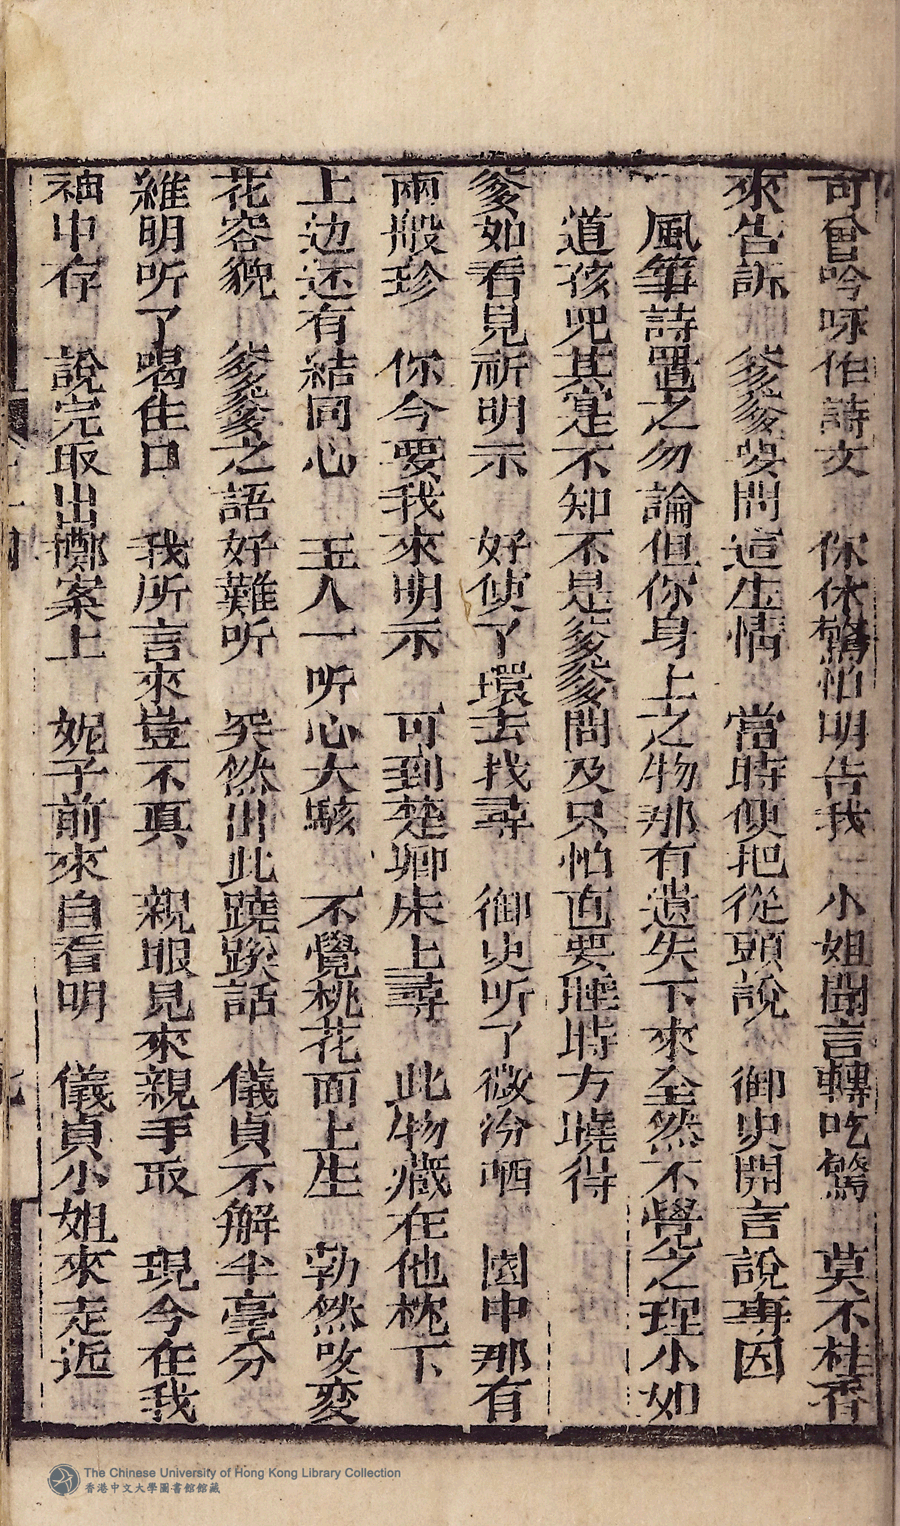 可曾吟咏作詩文　你休驚怕明告我　小姐聞言轉吃驚　莫不桂香
來告訴　爹爹要問這生情　當時便把從頭說　御史開言說事因
風箏詩置之勿論但你身上之物那有遺失下來全然不覺之理小如
道孩児其寔不知不是爹爹問及只怕直要睡時方曉得
爹如看見祈明示　好使了環去找尋　御史听了微冷哂　園中那有
兩般珍　你今要我來明示　可到楚卿床上尋　此物藏在他枕下
上边还有結同心　玉人一听心大駭　不覺桃花面上生　勃然改变
花容貌　爹爹之語好難听　突然出此蹺蹊話　儀貞不解半毫分
維明听了喝住口　我所言來豈不真　親眼見來親手取　現今在我
袖中存　說完取出擲案上　妮子前來自看明　儀貞小姐來走近
The Chinese University of Hong Kong Library Collection
香港中文大學圖書館館藏